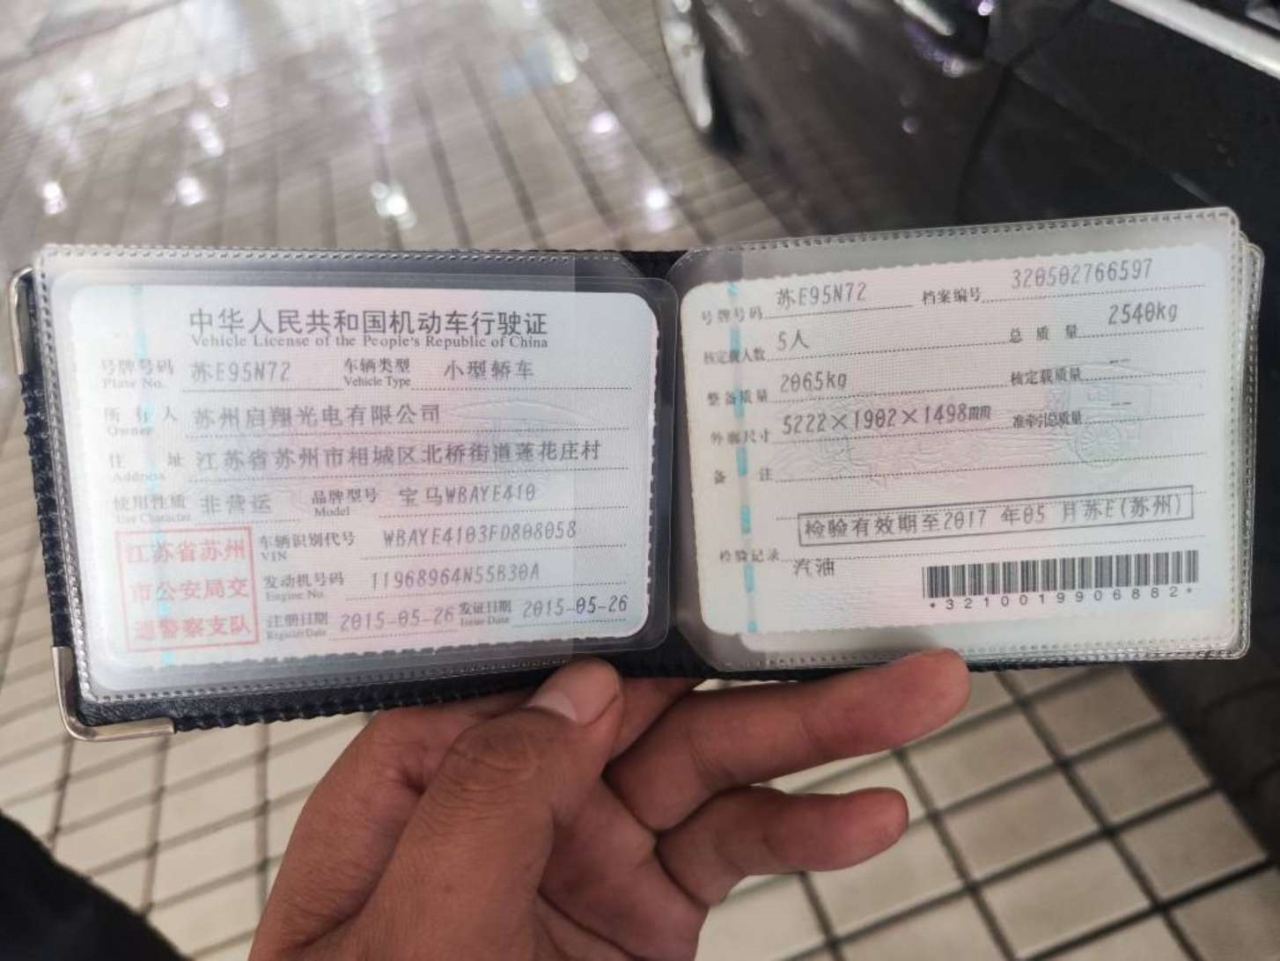 中华人民共和国机动车行驶证
Vehicle License of the People's Republic of China
号牌号码 苏E95N72 车辆类型 小型轿车
Plate No. Vehicle Type
所有人 苏州启翔光电有限公司
Owner
住址 江苏省苏州市相城区北桥街道莲花庄村
Address
使用性质 非营运 品牌型号 宝马WBAYE410
Use Character Model
江苏省苏州
市公安局交
通警察支队
车辆识别代号 WBAYE4103FD808058
VIN
发动机号码 11968964N55B30A
Engine No.
注册日期 2015-05-26 发证日期 2015-05-26
Register Date Issue Date
号牌号码 苏E95N72 档案编号 320502766597
核定载人数 5人 总质量 2540kg
整备质量 2065kg 核定载质量 --
外廓尺寸 5222×1902×1498mm 准牵引总质量 --
备注
检验有效期至2017年05月苏E(苏州)
检验记录 汽油
*3210019906882*